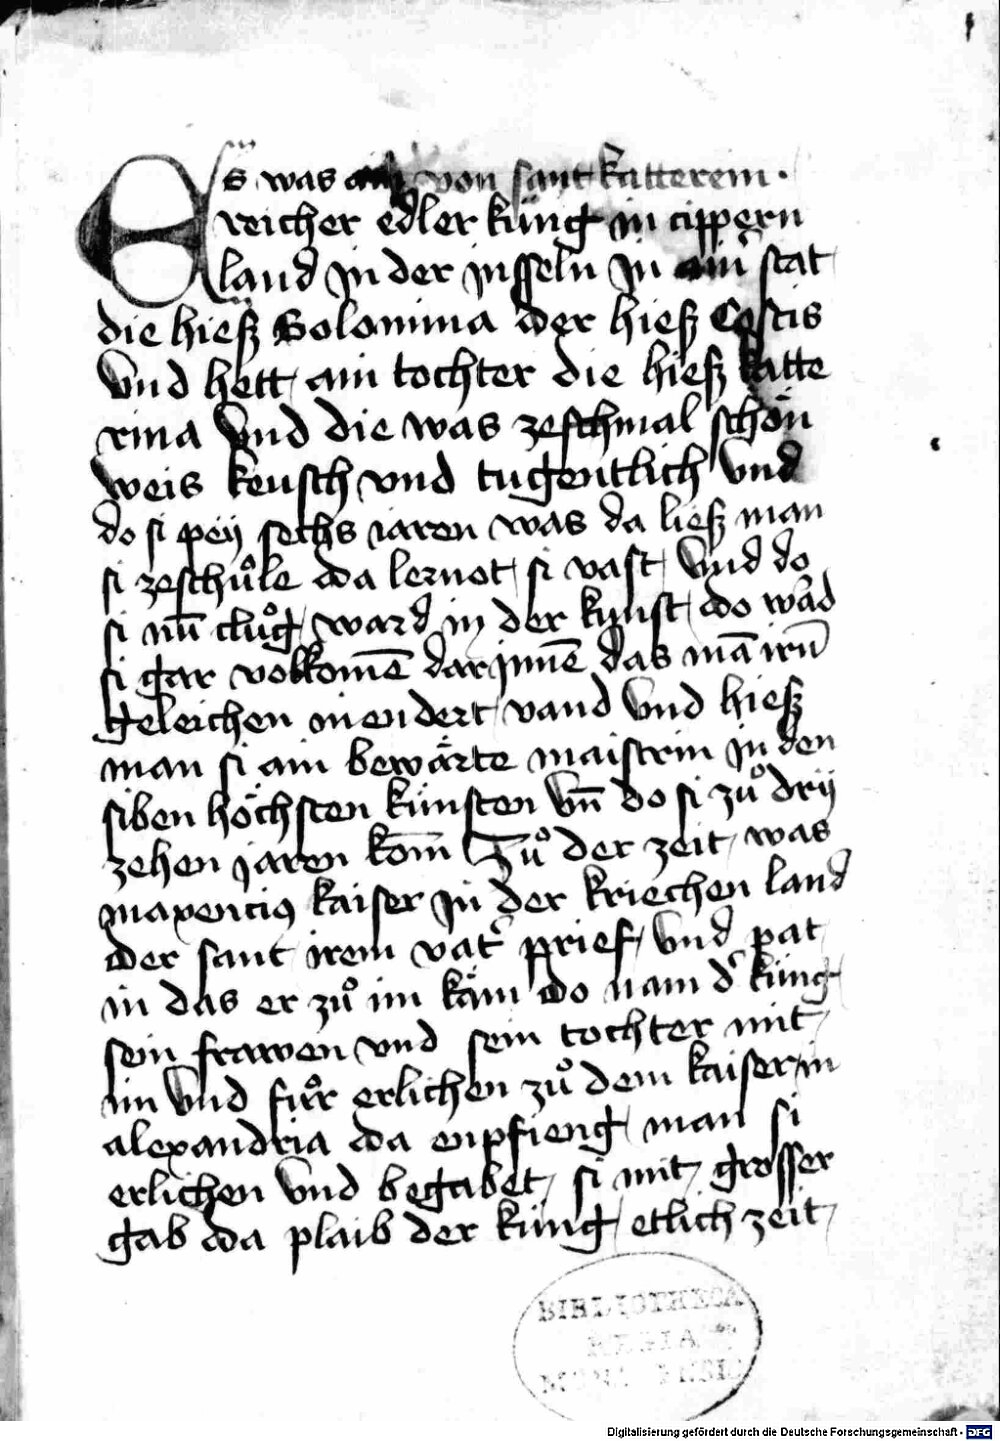 Es was ain von sant katterem ·
reicher edler küng in cippern
land in der jnsseln jn ain̉ stat
die hieß Solomina der hieß Costis
vnd hett ain tochter die hieß katte
rina vnd die was zeschmal schön
weis keusch vnd tugentlich vnd
do si peÿ sechs iaren was da ließ man
si zeschůle da lernot si vast vnd do
si nū clůg ward in der kunst do wård
si gar volkomē dar jnnē das mā irn̄
geleichen niendert vand vnd hieß
man si ain bewärte maistrin jn den
siben höchsten künsten vn̄ do si zů drÿ
zehen jaren kom̄ Zů der zeit was
maxenciꝰ kaiser jn der kriechen land
der sant irem vat̉ prief vnd pat
in das er zů im käm do nam d̉ küng
sein frawen vnd sein tochter mit
im vnd fůr erlichen zů dem kaiser in
alexandria da enpfieng man si
erlichen vnd begabet si mit grosser
gab da plaib der küng etlich zeit
BIBLIOTHECA
REGIA
MONACENSIS
Digitalisierung gefördert durch die Deutsche Forschungsgemeinschaft - DFG